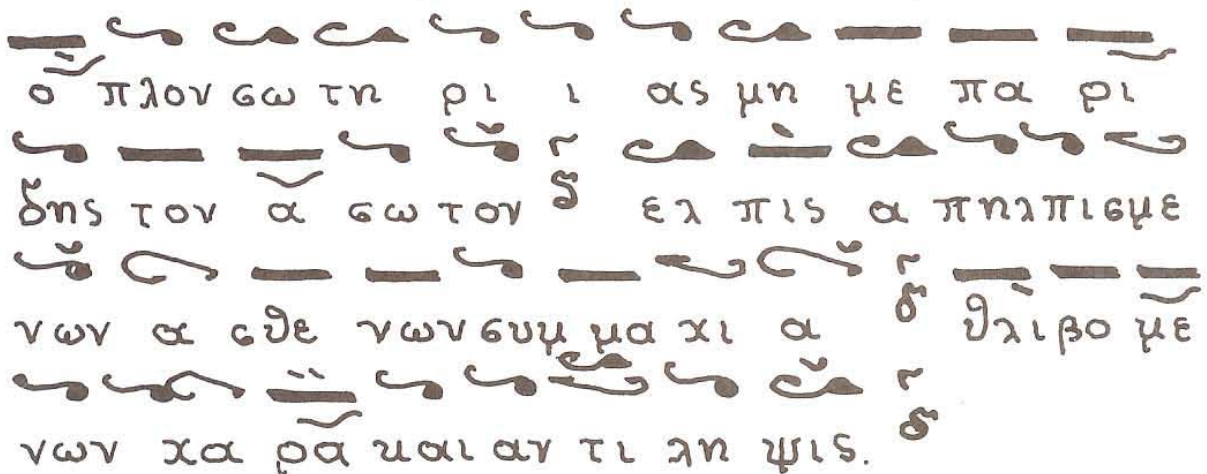 ο πλον σω τη ρι ι ας μη με πα ρι
δης τον α σω τον δ ελ πις α πηλπισμε
νων α σθε νων συμ μα χι α δ θλι βο με
νων χα ρα και αν τι λη ψις. δ